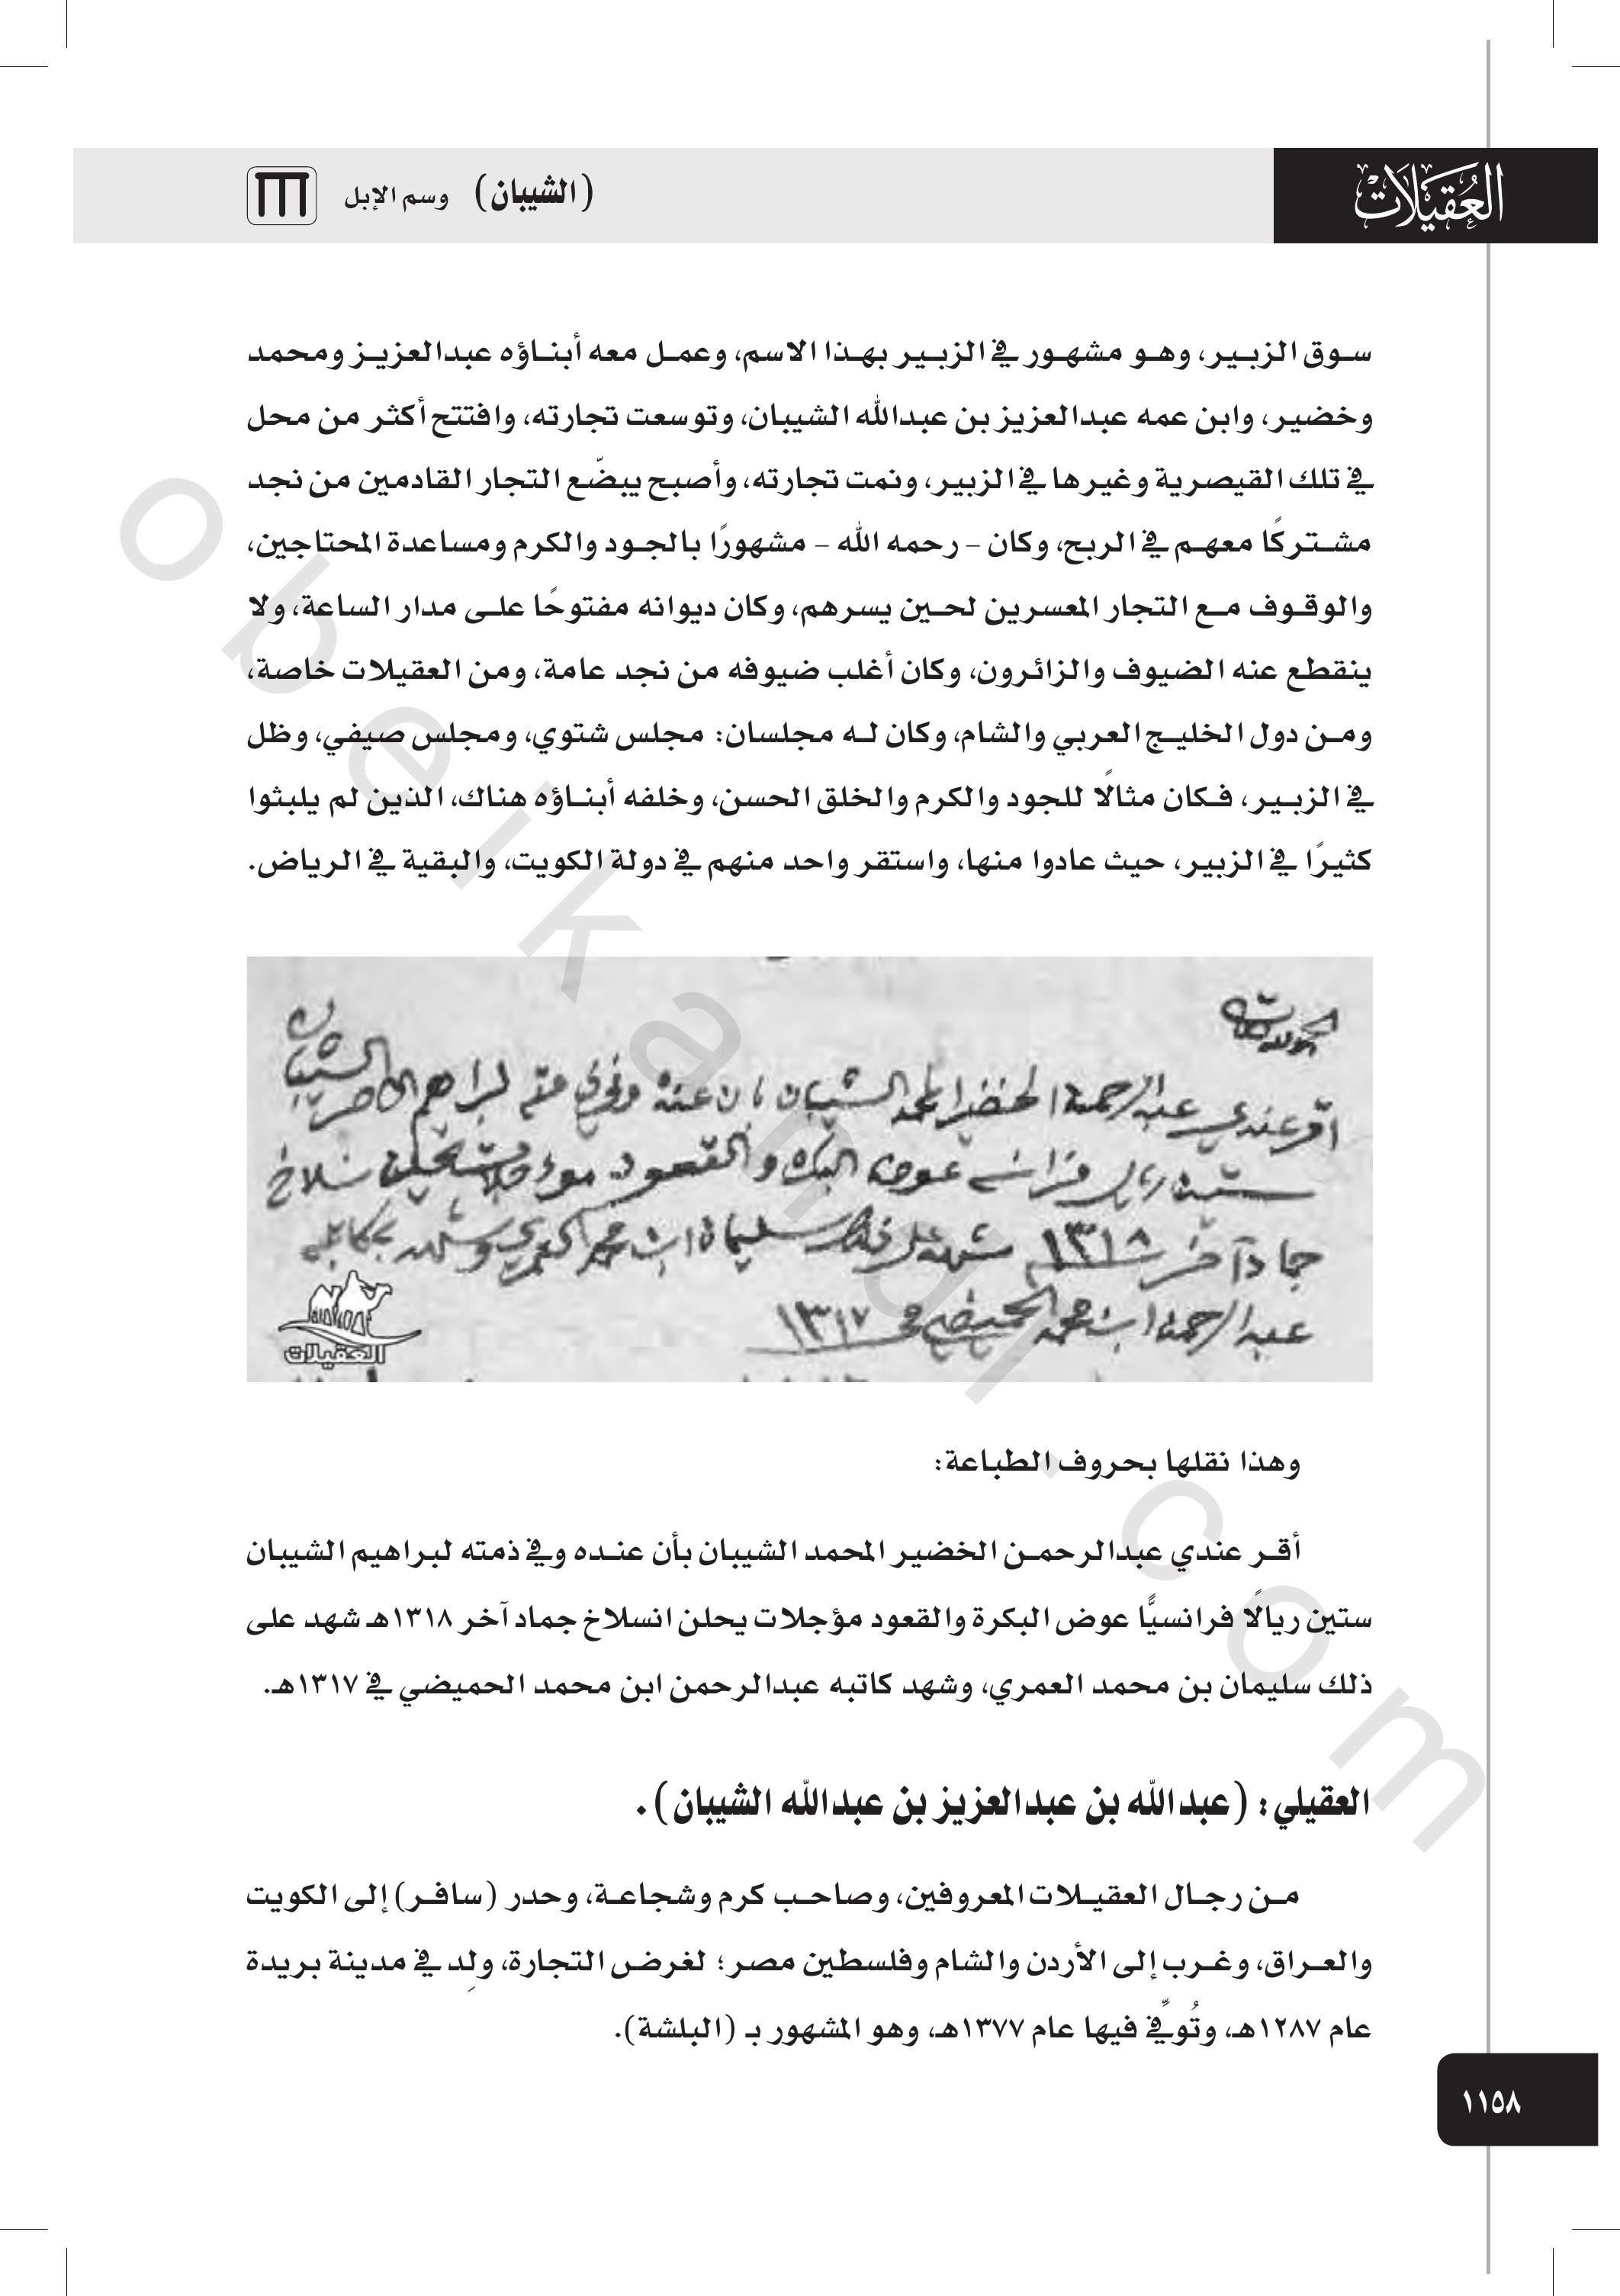 العُقَيلَات
(الشيبان) وسم الإبل
سوق الزبير، وهو مشهور في الزبير بهذا الاسم، وعمل معه أبناؤه عبدالعزيز ومحمد
وخضير، وابن عمه عبدالعزيز بن عبدالله الشيبان، وتوسعت تجارته، وافتتح أكثر من محل
في تلك القيصرية وغيرها في الزبير، ونمت تجارته، وأصبح يبضّع التجار القادمين من نجد
مشتركًا معهم في الربح، وكان – رحمه الله – مشهورًا بالجود والكرم ومساعدة المحتاجين،
والوقوف مع التجار المعسرين لحين يسرهم، وكان ديوانه مفتوحًا على مدار الساعة، ولا
ينقطع عنه الضيوف والزائرون، وكان أغلب ضيوفه من نجد عامة، ومن العقيلات خاصة،
ومن دول الخليج العربي والشام، وكان له مجلسان: مجلس شتوي، ومجلس صيفي، وظل
في الزبير، فكان مثالًا للجود والكرم والخلق الحسن، وخلفه أبناؤه هناك، الذين لم يلبثوا
كثيرًا في الزبير، حيث عادوا منها، واستقر واحد منهم في دولة الكويت، والبقية في الرياض.
اقر عندي عبدالرحمن الخضير المحمد الشيبان بان عنده وفي ذمته لبراهيم الشيبان
ستين ريال فرانسه عوض البكره والقعود يحلن انسلاخ
جماد آخر ١٣١٨ شهد على ذلك سليمان ابن محمد العمري وشهد به كاتبه
عبدالرحمن ابن محمد الحميضي ١٣١٧
العقيلات
وهذا نقلها بحروف الطباعة:
أقر عندي عبدالرحمن الخضير المحمد الشيبان بأن عنده وفي ذمته لبراهيم الشيبان
ستين ريالًا فرانسيًّا عوض البكرة والقعود مؤجلات يحلن انسلاخ جماد آخر ١٣١٨هـ شهد على
ذلك سليمان بن محمد العمري، وشهد كاتبه عبدالرحمن ابن محمد الحميضي في ١٣١٧هـ.
العقيلي: (عبدالله بن عبدالعزيز بن عبدالله الشيبان).
من رجال العقيلات المعروفين، وصاحب كرم وشجاعة، وحدر (سافر) إلى الكويت
والعراق، وغرب إلى الأردن والشام وفلسطين مصر؛ لغرض التجارة، ولِد في مدينة بريدة
عام ١٢٨٧هـ، وتُوفِّي فيها عام ١٣٧٧هـ، وهو المشهور بـ (البلشة).
١١٥٨
obeikandl.com